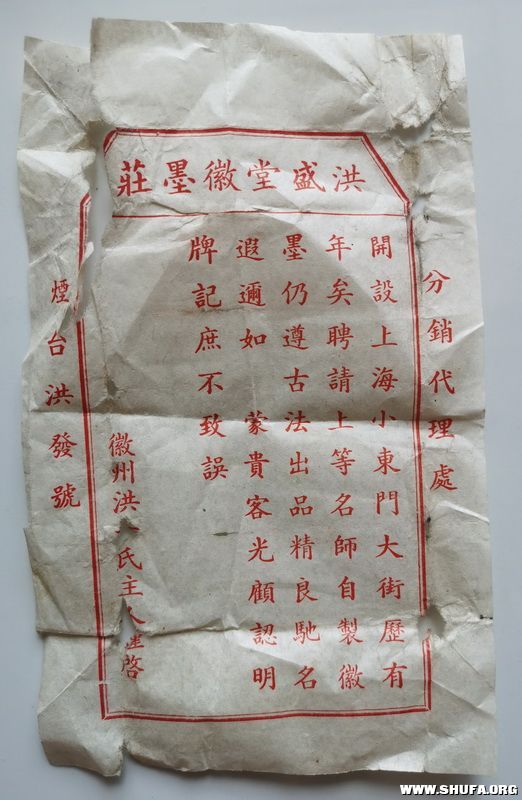 洪盛堂徽墨莊
分銷代理處
開設上海小東門大街歷有
年矣聘請上等名師自製徽
墨仍遵古法出品精良馳名
遐邇如 蒙貴客光顧認明
牌記庶不致誤
徽州洪 氏主人謹啓
煙台洪發號
WWW.SHUFA.ORG